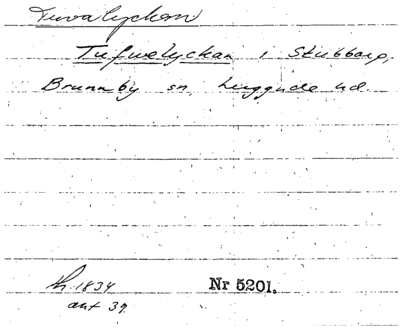 Tuvalyckan
Tufwelyckan i Stubbarp,
Brunnby sn Luggude hd.
Lh. 1834 Nr 5201.
akt 39